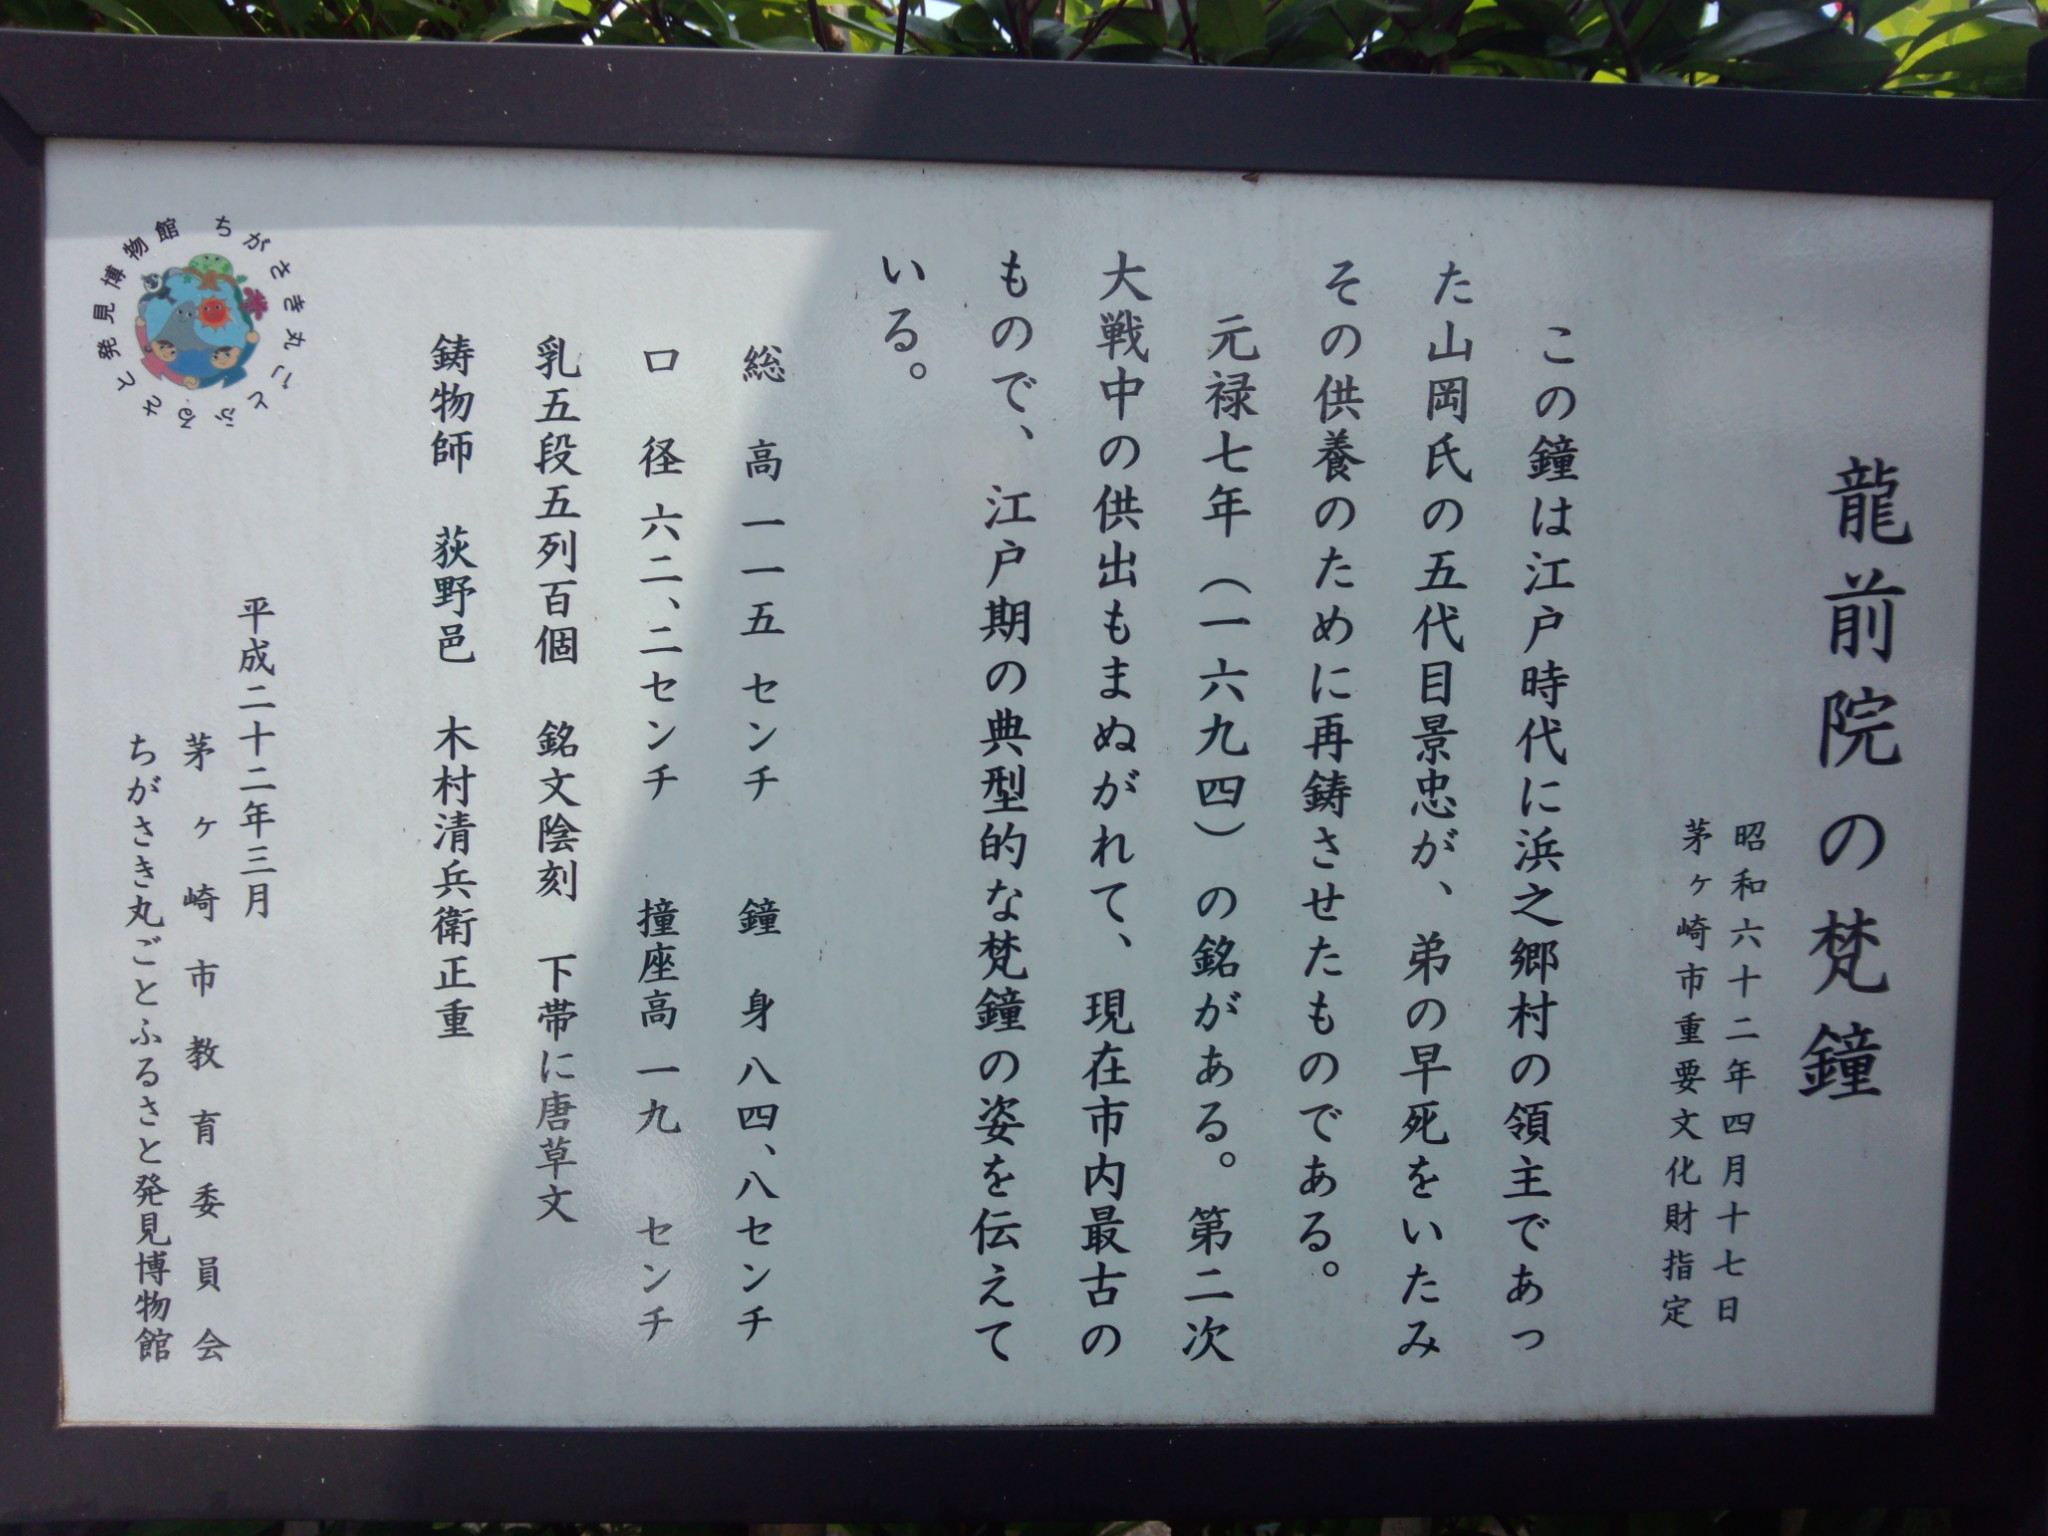 龍前院の梵鐘
昭和六十二年四月十七日
茅ヶ崎市重要文化財指定
この鐘は江戸時代に浜之郷村の領主であっ
た山岡氏の五代目景忠が、弟の早死をいたみ
その供養のために再鋳させたものである。
元禄七年（一六九四）の銘がある。第二次
大戦中の供出もまぬがれて、現在市内最古の
もので、江戸期の典型的な梵鐘の姿を伝えて
いる。
総高 一一五センチ 鐘身 八四、八センチ
口径 六二、二センチ 撞座高 一九 センチ
乳五段五列百個 銘文陰刻 下帯に唐草文
鋳物師 荻野邑 木村清兵衛正重
平成二十二年三月
茅ヶ崎市教育委員会
ちがさき丸ごとふるさと発見博物館
ちがさき丸ごとふるさと発見博物館